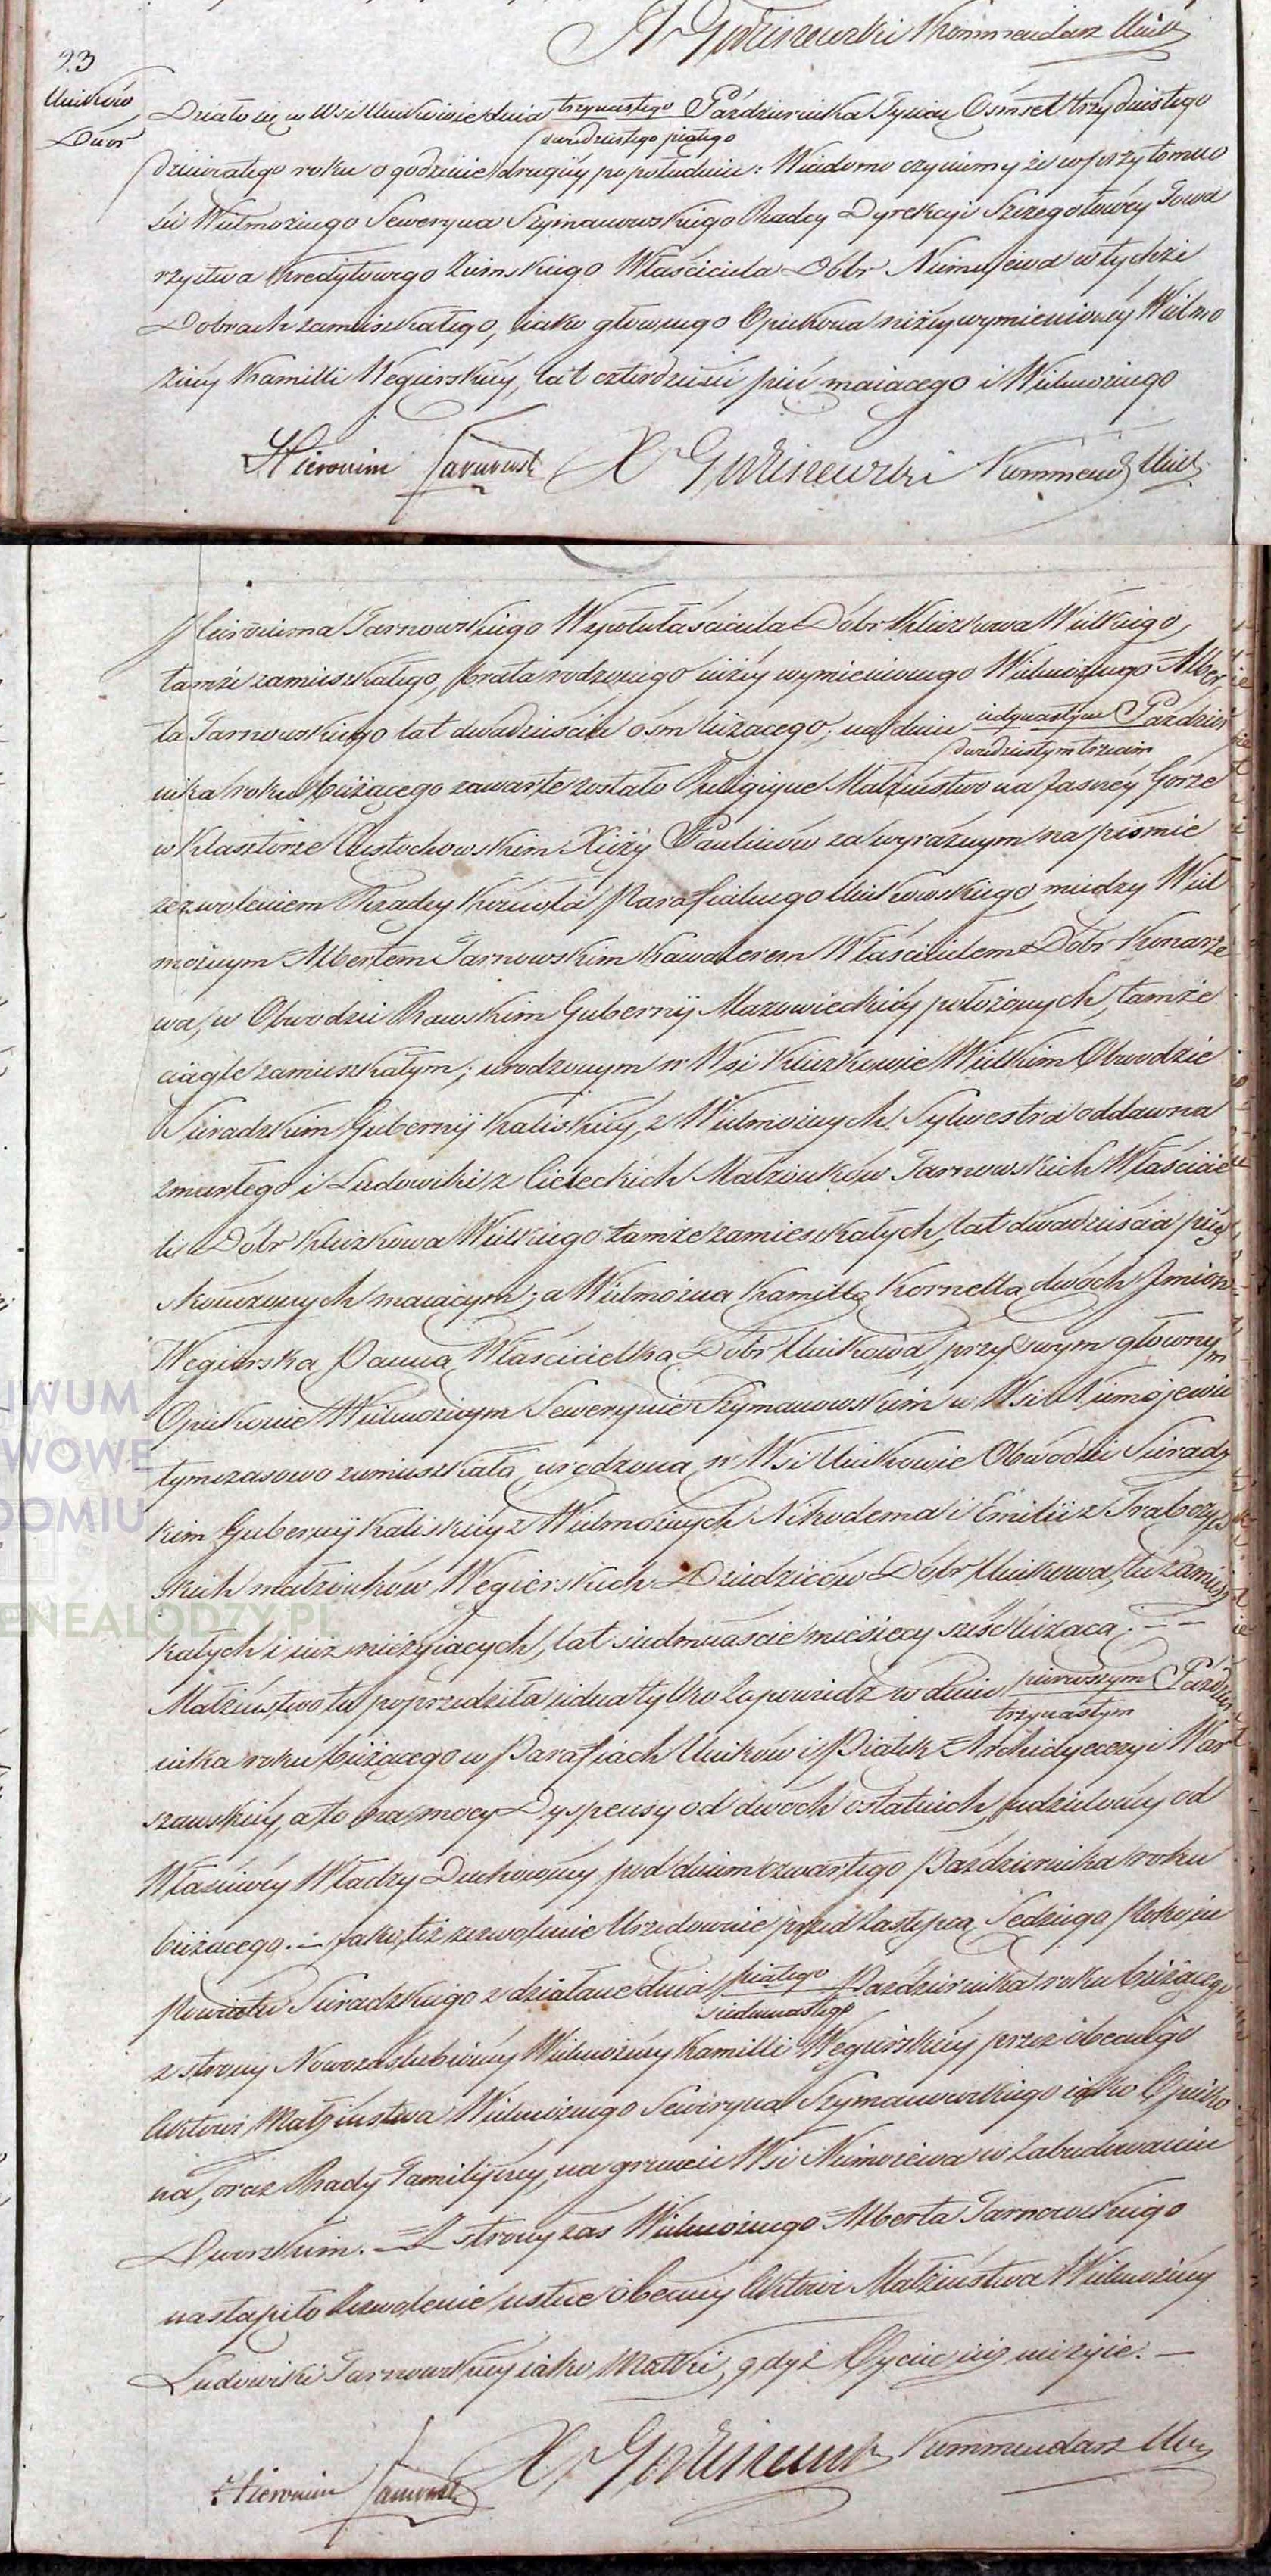 X Godziszewski Kommendarz Unik
23
Uników
Dwór
Działo się w Wsi Unikowie dnia trzynastego Października Tysiąc Ośmset trzydziestego
dwudziestego piątego
dziewiątego roku o godzinie drugiéy popołudniu: Wiadomo czyniemy że w przytomno
ści Wielmożnego Seweryna Szymanowskiego Radcy Dyrekcyi Szczegołowéy Towa
rzystwa Kredytowego Ziemskiego Właściciela Dóbr Niemojewa w tychże
Dobrach zamieszkałego, iako głównego Opiekuna niżéy wymienionéy Wielmo
żnéy Kamilli Węgierskiéy, lat czterdzieści pięć maiącego i Wielmożnego
Hieronim Tarnowski X Godziszewski Kommend Unik
Hieronima Tarnowskiego Współwłaściciela Dóbr Kliczkowa Wielkiego,
tamże zamieszkałego, brata rodzonego niżéy wymienionego Wielmożnego Alber
ta Tarnowskiego lat dwadzieścia ośm liczącego; na dniu iedynastym Paździer
dwudziestym trzecim
nika roku bieżącego zawarte zostało Religijne Małżeństwo na Jasnéy Górze
w Klasztorze Częstochowskim Xięży Paulinów za wyraźnym na piśmie
zezwoleniem Rządcy Kościoła Parafialnego Unikowskiego, między Wiel
możnym Albertem Tarnowskim Kawalerem Właścicielem Dóbr Konarze
wa, w Obwodzie Rawskim Gubernij Mazowieckiéy położonych, tamże
ciągle zamieszkałym; urodzonym w Wsi Kliczkowie Wielkim Obwodzie
Sieradzkim Gubernij Kaliskiéy, z Wielmożnych Sylwestra oddawna
zmarłego i Ludowiki z Cieleckich Małżonków Tarnowskich Właścicie
li Dóbr Kliczkowa Wielkiego tamże zamieszkałych, lat dwadzieścia pięć
skończonych maiącym; a Wielmożną Kamillą Kornellą dwóch Imion
Węgierską Panną Właścicielką Dóbr Unikowa, przy swym głównym
Opiekunie Wielmożnym Sewerynie Szymanowskim w Wsi Niemojewie
tymczasowo zamieszkałą, urodzoną w Wsi Unikowie Obwodzie Sieradz
kim Gubernij Kaliskiéy z Wielmożnych Nikodema i Emilii z Trąbczyń
skich małżonków Węgierskich Dziedziców Dóbr Unikowa, tu zamiesz
kałych i iuż nieżyiących, lat siedmnaście miesięcy sześć liczącą. —
Małżeństwo to poprzedziła iedna tylko Zapowiedź w dniu pierwszym Paździer
trzynastym
nika roku bieżącego w Parafiach Uników i Piątek Archidyecezyi War
szawskiéy, a to na mocy Dyspensy od dwóch ostatnich, udzielonéy od
Właściwéy Władzy Duchownéy pod dniem czwartego Października roku
bieżącego. — Jako też zezwolenie Urzędownie przed Zastępcą Sędziego Pokoju
Powiatu Sieradzkiego zdziałane dnia piątego Października roku bieżącego
siedmnastego
z strony Nowozaślubionéy Wielmożnéy Kamilli Węgierskiéy przez obecnego
Aktowi Małżeństwa Wielmożnego Seweryna Szymanowskiego iako Opieku
na, oraz Rady Familijnéy, na gruncie Wsi Niemoiewa w Zabudowaniu
Dworskim. — Z strony zaś Wielmożnego Alberta Tarnowskiego
nastąpiło Zezwolenie ustne obecnéy Aktowi Małżeństwa Wielmożnéy
Ludowiki Tarnowskiéy iako Matki, gdyż Oyciec iuż nie żyie. —
Hieronim Tarnowski X Godziszewski Kommendarz Unik